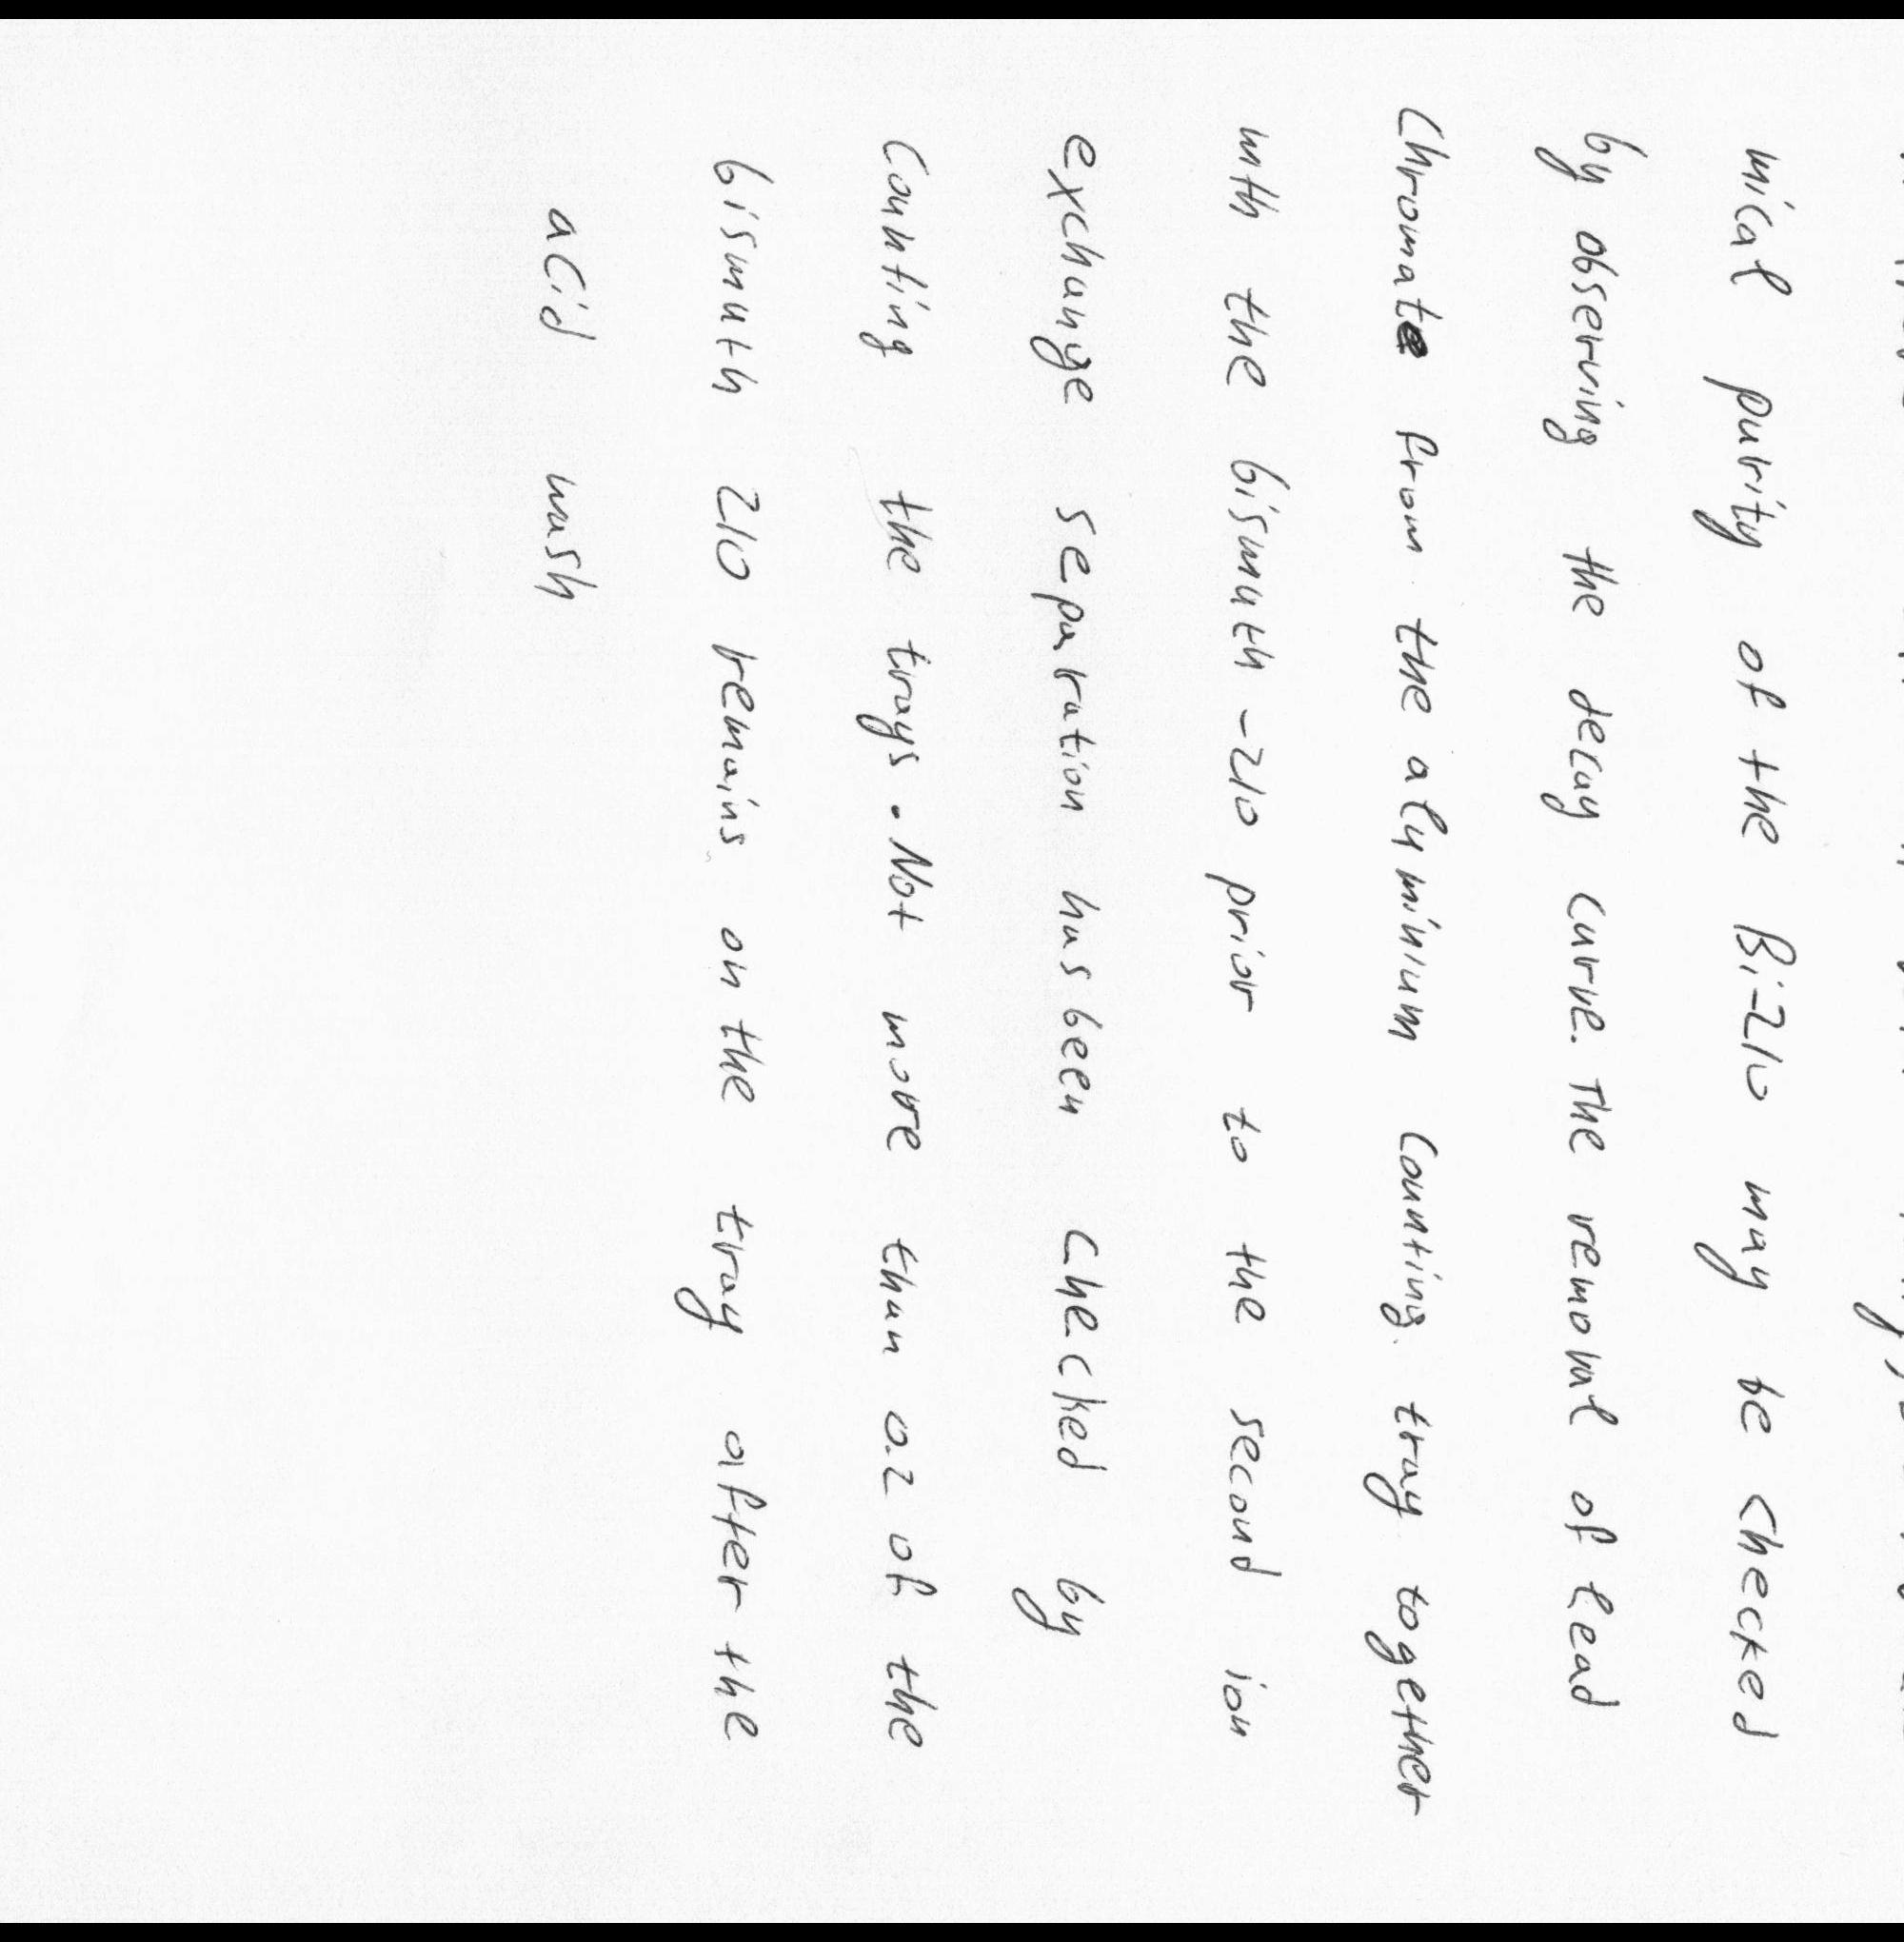 mical purity of the Bi-210 may be checked
by observing the decay curve. The removal of lead
Chromate from the alyminium Counting tray together
with the bismuth-210 prior to the second ion
exchange separation has been Checked by
Counting the trays. Not more than 0.2 of the
bismuth 210 remains on the tray after the
acid wash